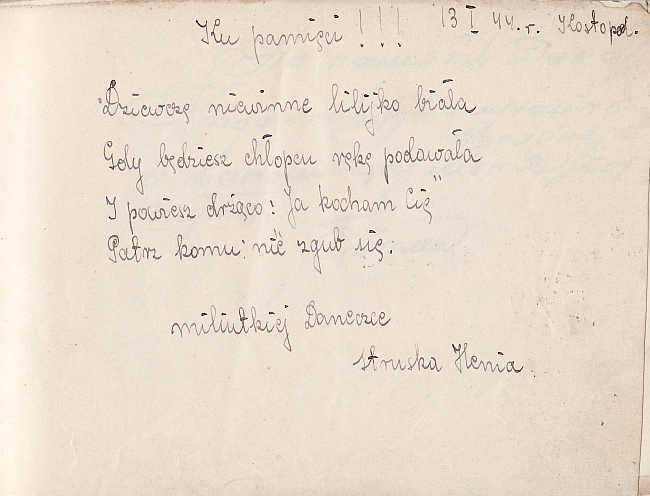 Ku pamięci!!! 13 I 44.r. Kostopol.
"Dziewczę niewinne lilijko biała
Gdy będziesz chłopcu rękę podawała
I powiesz drżąco: Ja kocham Cię"
Patrz komu: nie zgub się.
miliutkiej Daneczce
Struska Henia